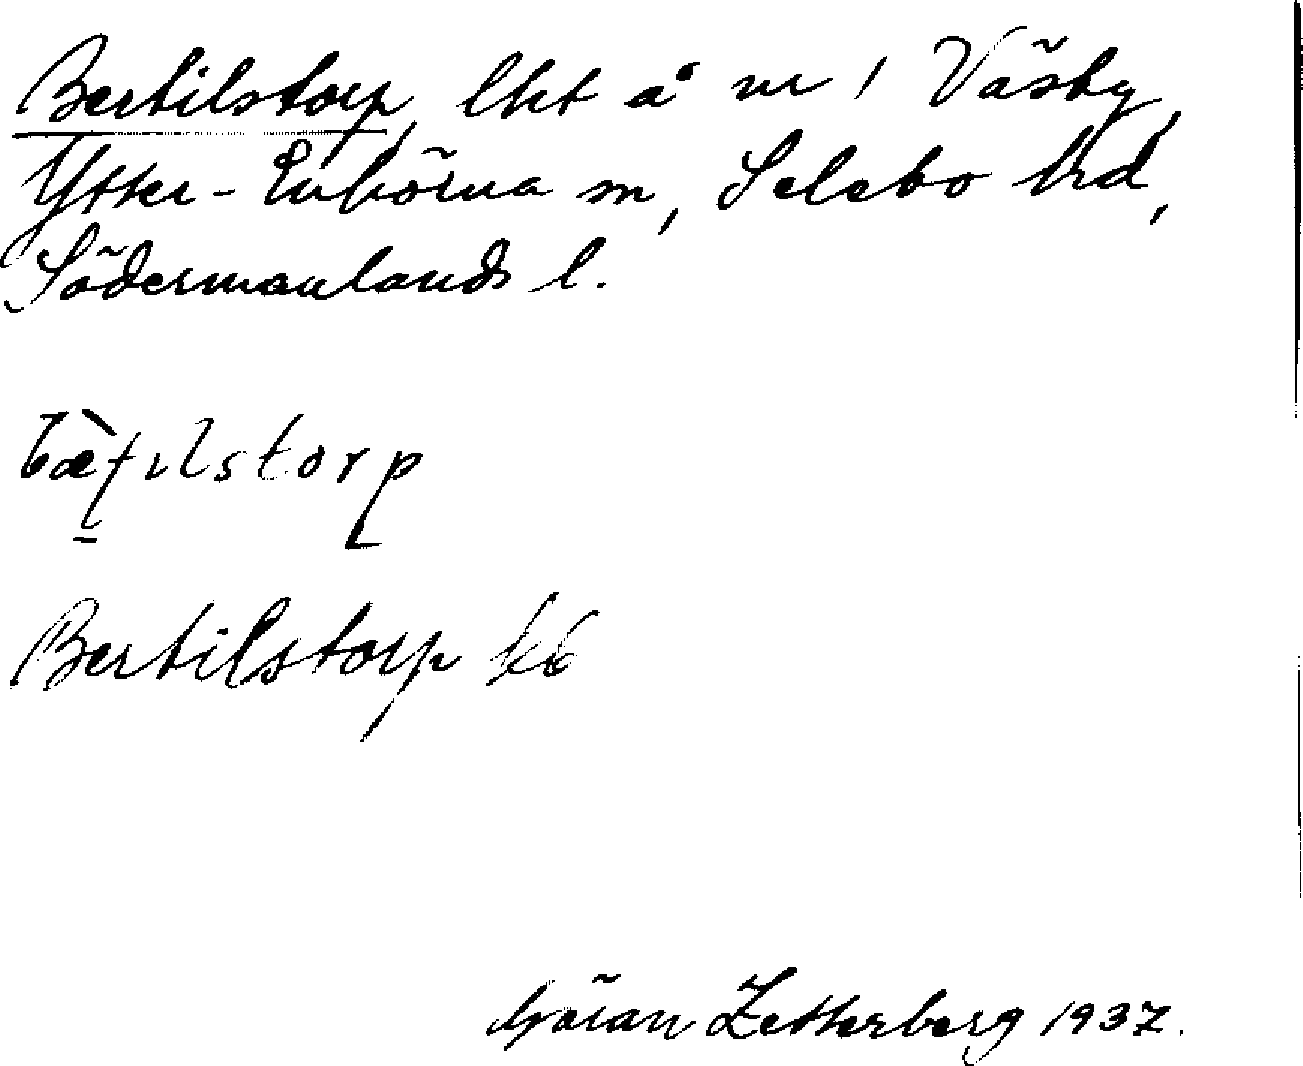 Bertilstorp, lht å nr 1 Väsby,
Ytter-Enhörna sn, Selebo hd,
Södermanlands l.
Bertilstorp
Göran Zetterberg 1937.